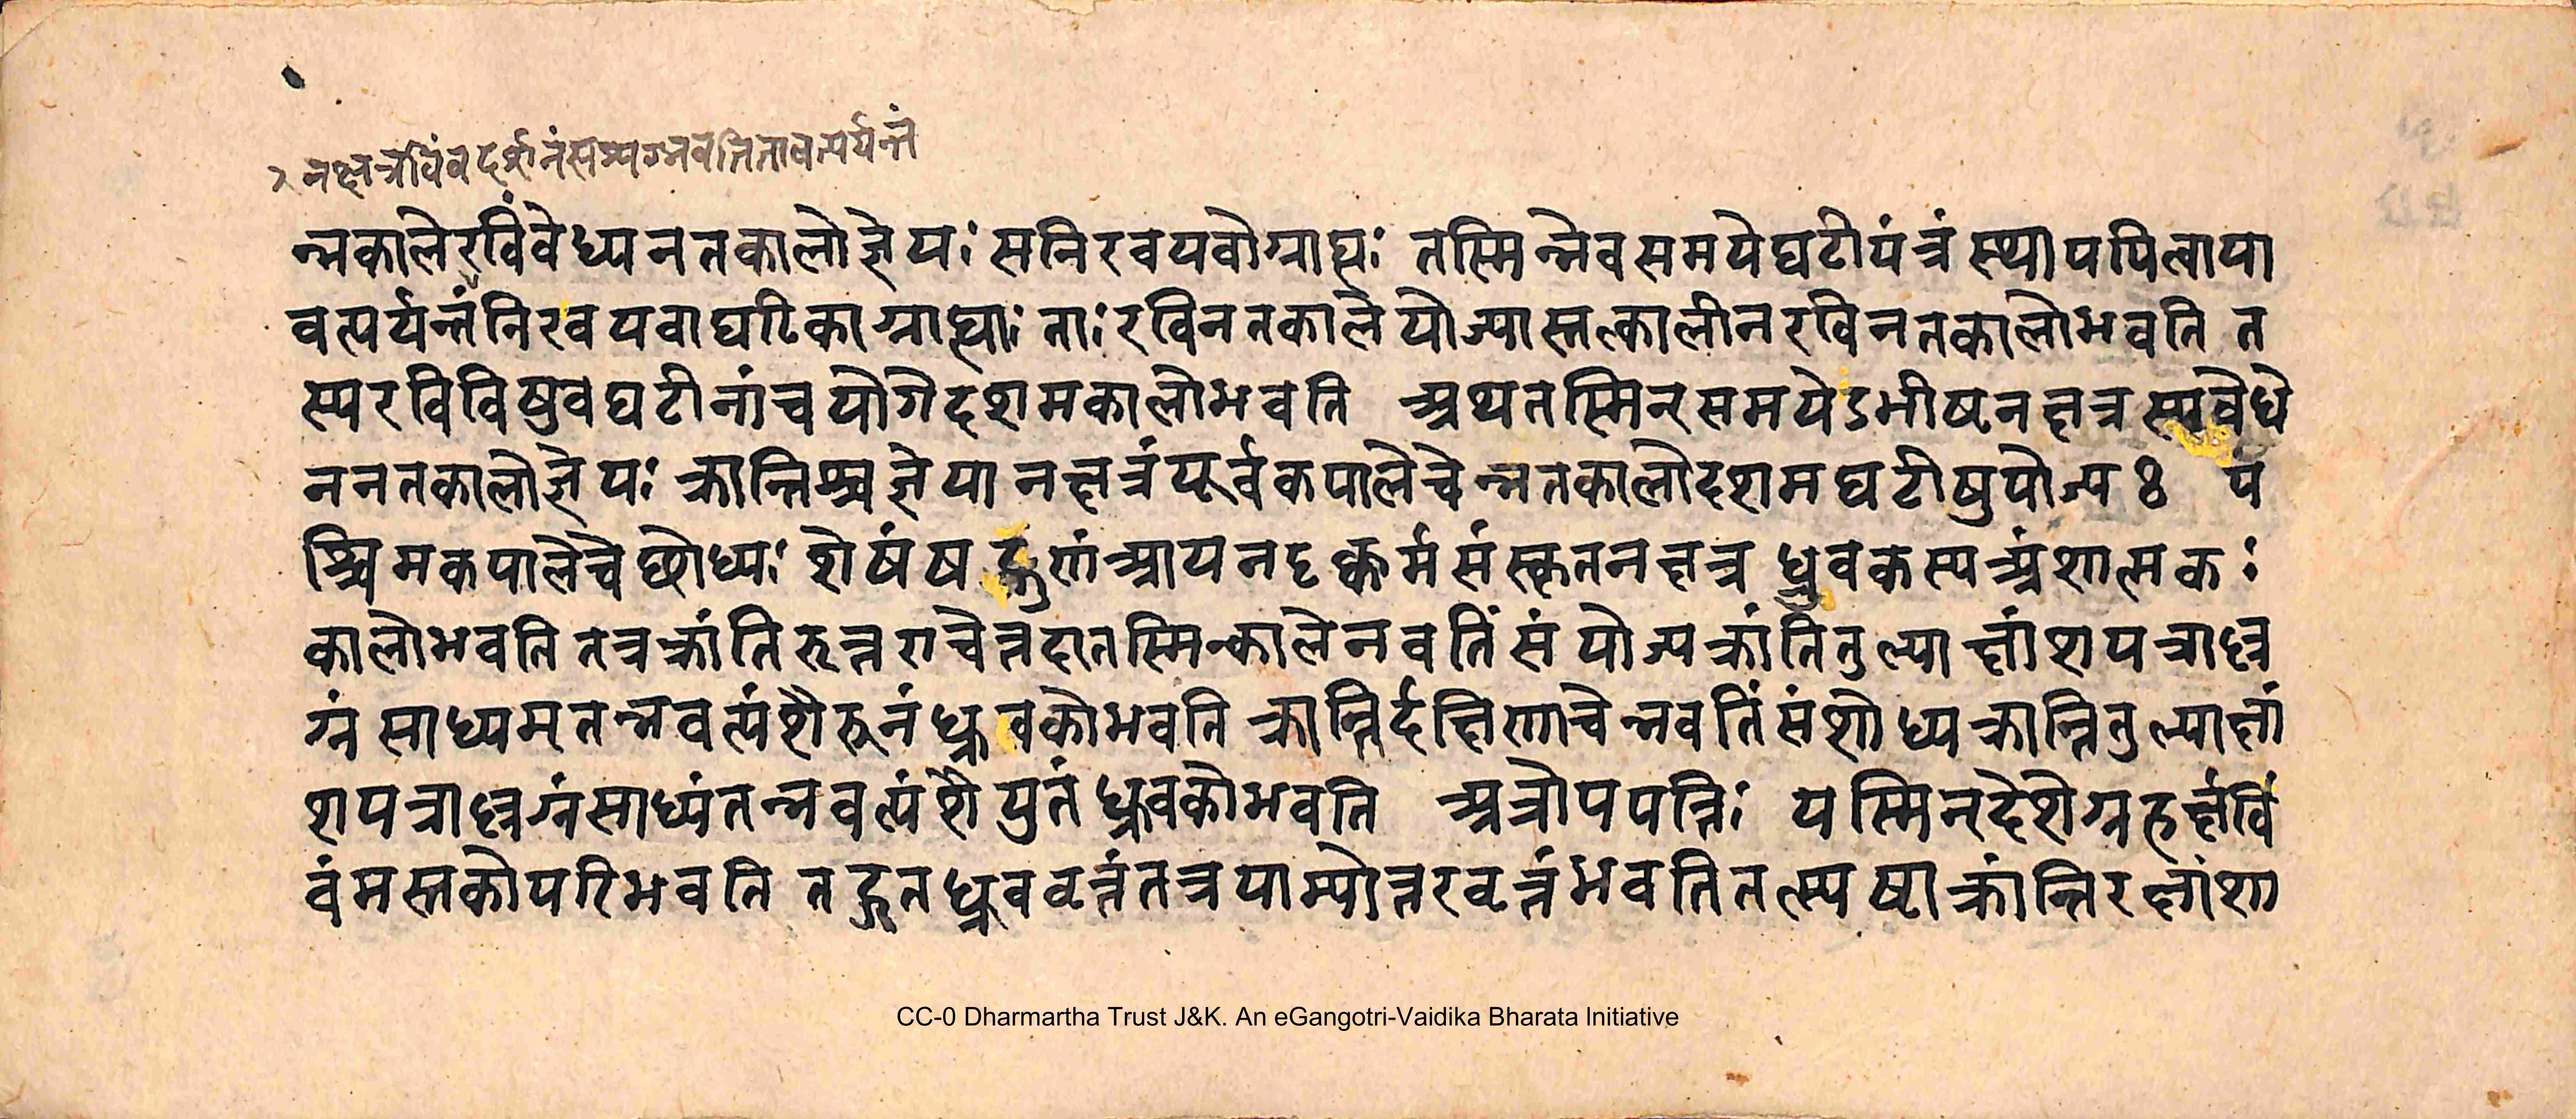 नक्षत्रविंवदर्शनंसम्यग्भवतितावत्पर्यन्तं
न्नकालेरविंवेध्यनतकालोज्ञेयः सनिरवयवोग्राह्यः तस्मिन्नेवसमयेघटीयंत्रं स्थापयित्वाया
वत्पर्यन्तंनिरवयवाघटिकाग्राह्याः ताः रविनतकाले योज्यास्तत्कालीनरविनतकालोभवति त
स्यरविविषुवघटीनांचयोगेदशमकालोभवति अथतस्मिन्समयेऽभीष्टनक्षत्रस्यवेधे
ननतकालोज्ञेयः क्रान्तिश्चज्ञेया नक्षत्रंपूर्वकपालेचेन्नतकालोदशमघटीषुयोज्यः प
श्चिमकपालेचेछोध्यः शेषंषड्गुणंआयनदृक्कर्मसंस्कृतनक्षत्रध्रुवकस्यअंशात्मकः
कालोभवति तत्रक्रांतिरुत्तराचेत्तदातस्मिन्कालेनवतिंसंयोज्यक्रांतितुल्याक्षांशपत्राल्ल
ग्नं साध्यम् तन्नवत्यंशैरूनं ध्रुवकोभवति क्रान्तिर्दक्षिणाचेन्नवतिंसंशोध्यक्रान्तितुल्याक्षां
शपत्राल्लग्नंसाध्यंतन्नवत्यंशैर्युतं ध्रुवकोभवति अत्रोपपत्तिः यस्मिन्देशेग्रहर्क्षविं
वंमस्तकोपरिभवति तद्गतध्रुववृत्तंतत्रयाम्योत्तरवृत्तंभवतितत्स्पष्टाक्रांन्तिरक्षांशा
CC-0 Dharmartha Trust J&K. An eGangotri-Vaidika Bharata Initiative